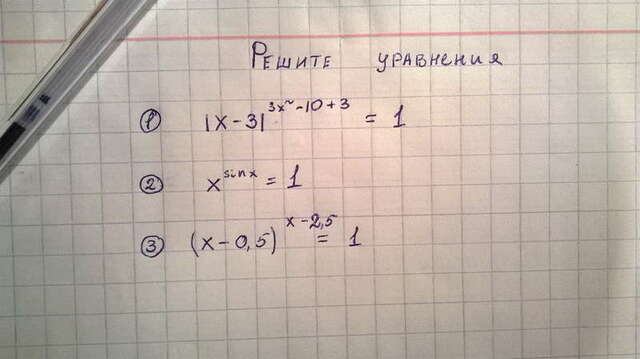 Решите уравнения
① |x-3|^3x²-10+3 = 1
② x^sinx = 1
③ (x-0,5)^x-2,5 = 1